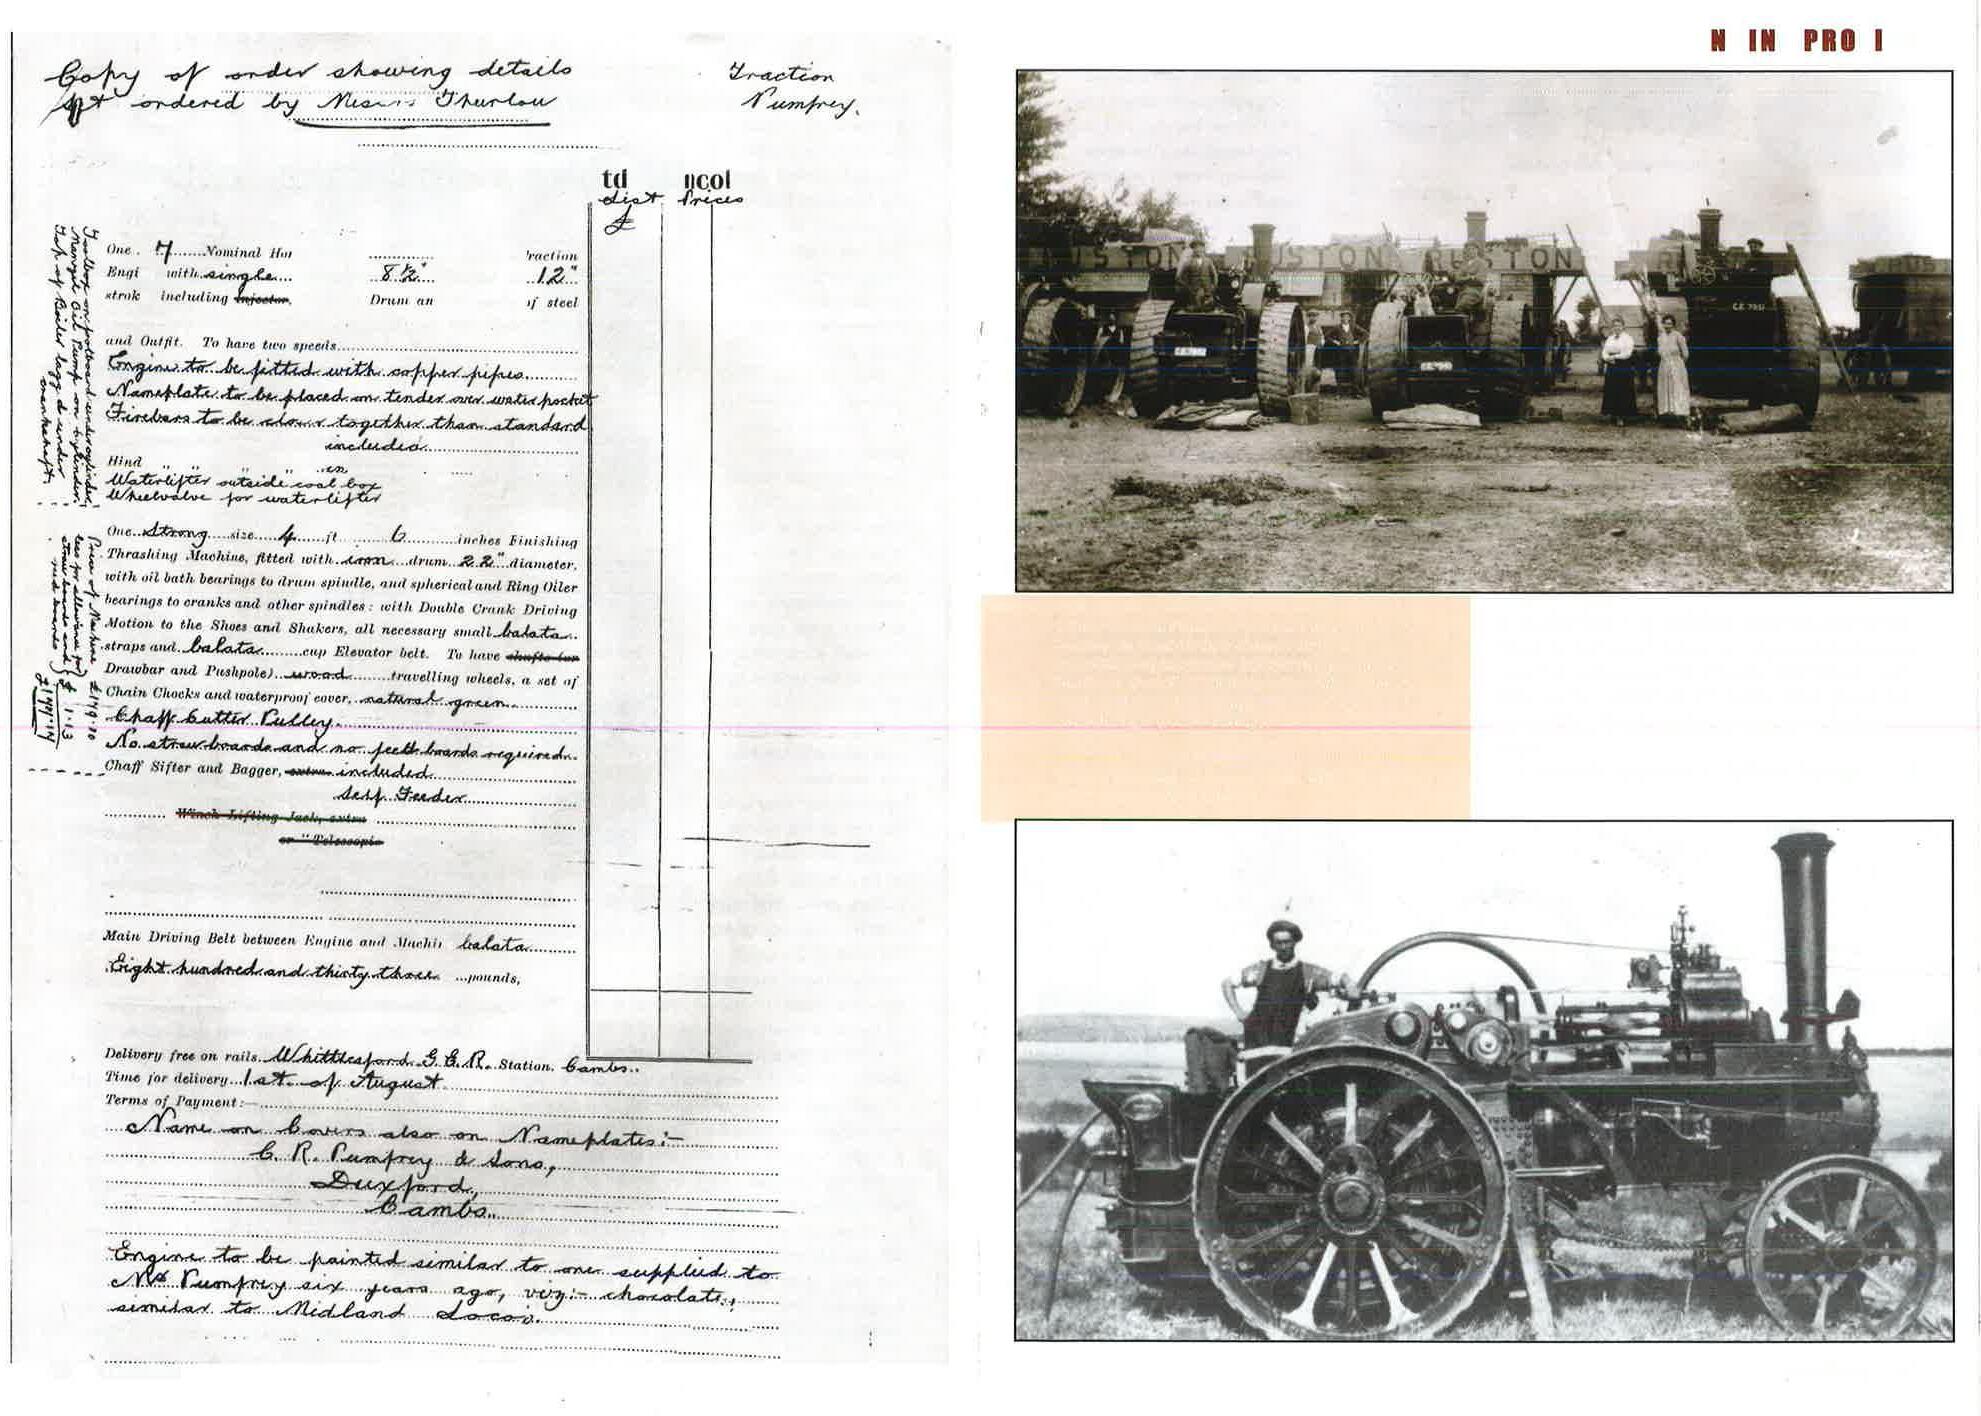 Copy of order showing details
ordered by Messrs Thurlow
Traction
Pumfrey.
td ncol
List Prices
£
One 7 Nominal Hor raction
Engi with single 8½" 12"
strok including Injector, Drum an of steel
and Outfit. To have two speeds
Engine to be fitted with copper pipes.
Nameplate to be placed on tender over water pocket
Firebars to be closer together than standard
included
Hind " " " "
Waterlifter outside coal box
Wheelvalve for waterlifter
Toolbox on footboard under cylinder,
Manzel Oil Pump on cylinder,
Top of Boiler lagged under
crankshaft.
One Strong size 4 ft 6 inches Finishing
Thrashing Machine, fitted with iron drum 22" diameter,
with oil bath bearings to drum spindle, and spherical and Ring Oiler
bearings to cranks and other spindles: with Double Crank Driving
Motion to the Shoes and Shakers, all necessary small balata
straps and balata cup Elevator belt. To have shafts (or
Drawbar and Pushpole) wood travelling wheels, a set of
Chain Chocks and waterproof cover, natural green
Chaff Cutter Pulley.
No straw boards and no feed boards required.
Chaff Sifter and Bagger, extra included
Self Feeder
Winch Lifting Jack, extra
or "Telescopic
Price of Machine
less for allowance for
straw boards and
Main Driving Belt between Engine and Machi balata
Eight hundred and thirty three pounds,
Delivery free on rails Whittlesford G.E.R. Station. Cambs.
Time for delivery 1st of August
Terms of Payment:—
Name on Covers also on Nameplates:—
C. R. Pumfrey & Sons,
Duxford,
Cambs.
Engine to be painted similar to one supplied to
Mr Pumfrey six years ago, viz:- chocolate,
similar to Midland Locos.
N IN PRO I
RUSTON
RUSTON
RUSTON
CE 7951